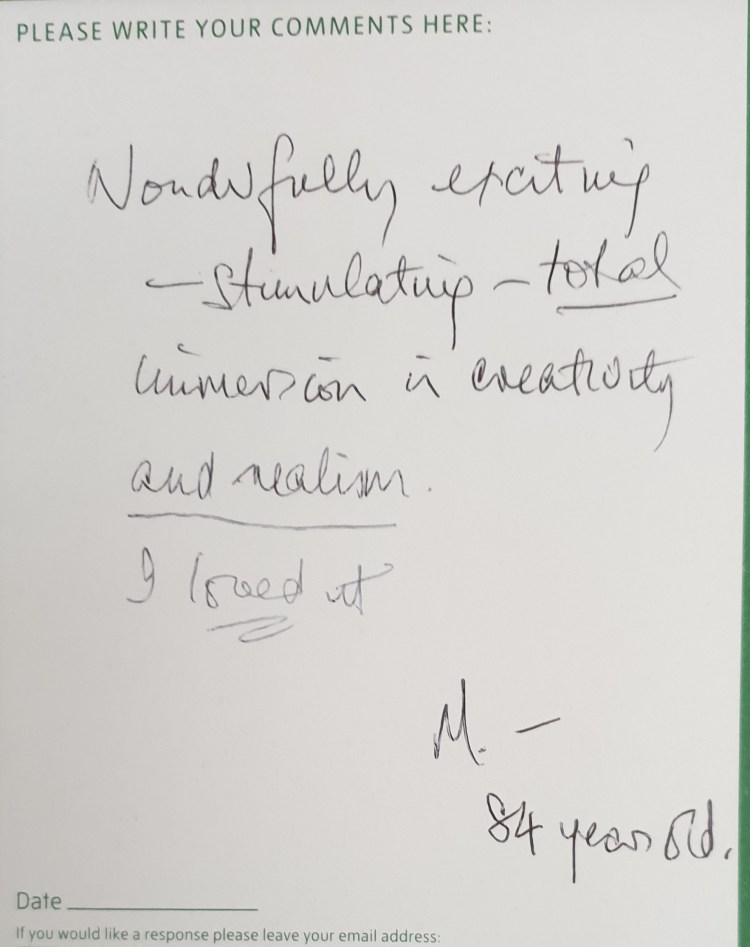 PLEASE WRITE YOUR COMMENTS HERE:
Wonderfully exciting
– stimulating – total
immersion in creativity
and realism.
I loved it
M. –
84 years old.
Date
If you would like a response please leave your email address: